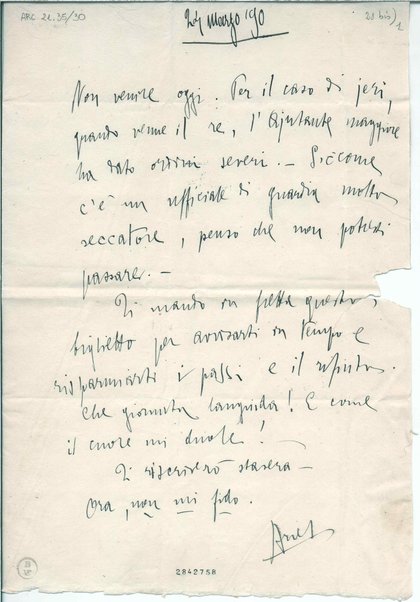 ARC 21.35/30
24 marzo '90
28 bis) 1
Non venire oggi. Per il caso di jeri,
quando venne il re, l'Ajutante maggiore
ha dato ordini severi. – Siccome
c'è un ufficiale di guardia molto
seccatore, penso che non potresti
passare. –
Ti mando in fretta questo
biglietto per avvisarti in tempo e
risparmiarti i passi e il rifiuto.
Che giornata languida! E come
il cuore mi duole!
Ti riscriverò stasera –
Ora, non mi fido.
2842758